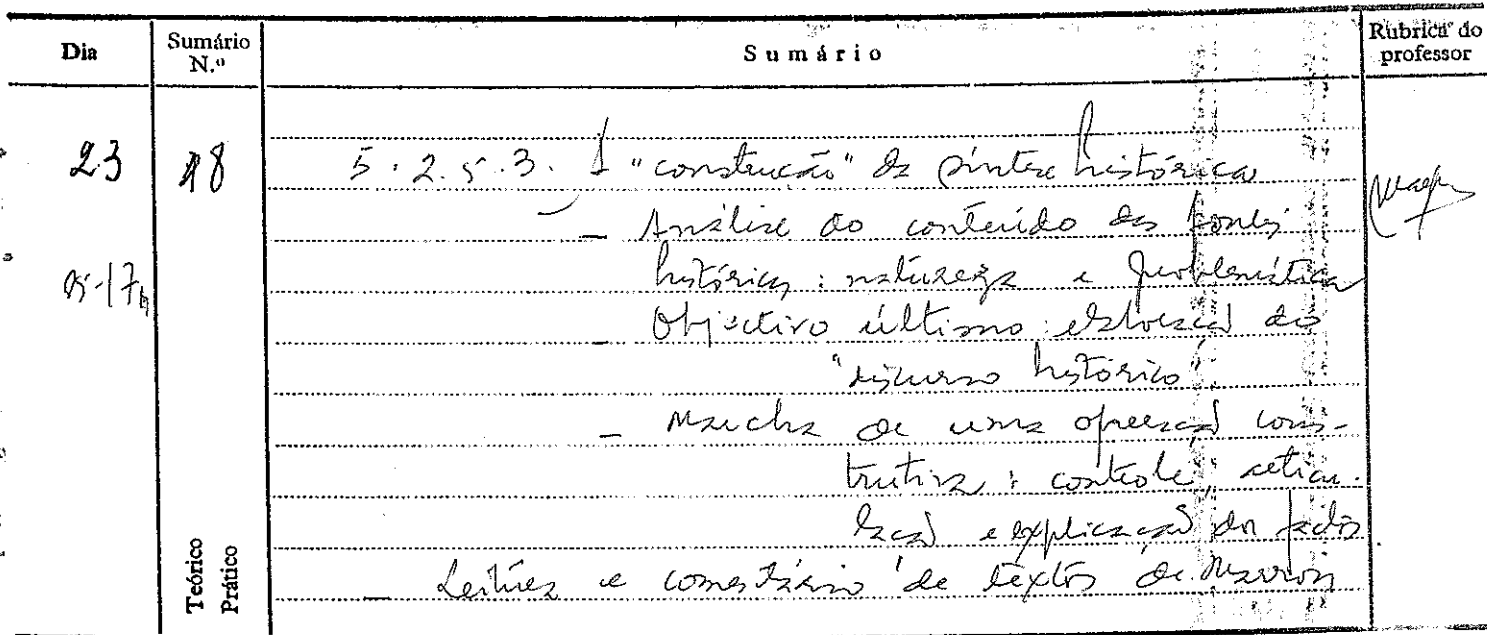 Dia
Sumário N.º
Sumário
Rubrica do professor
23
18
5.2.5.3. A "construção" da síntese histórica
15-17h
— Análise do conteúdo das fontes
históricas: natureza e problemática
— Objectivo último: elaboração do
"discurso histórico"
— Marcha de uma operação cons-
trutiva: controle, articu-
lação e explicação dos factos
— Leitura e comentário de textos de Marrou
Teórico
Prático